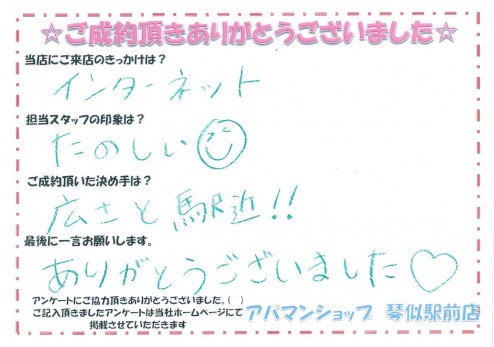 ☆ご成約頂きありがとうございました☆
当店にご来店のきっかけは？
インターネット
担当スタッフの印象は？
たのしい
ご成約頂いた決め手は？
広さと駅近!!
最後に一言お願いします。
ありがとうございました♡
アンケートにご協力頂きありがとうございました。(　)
ご記入頂きましたアンケートは当社ホームページにて
掲載させていただきます
アパマンショップ 琴似駅前店